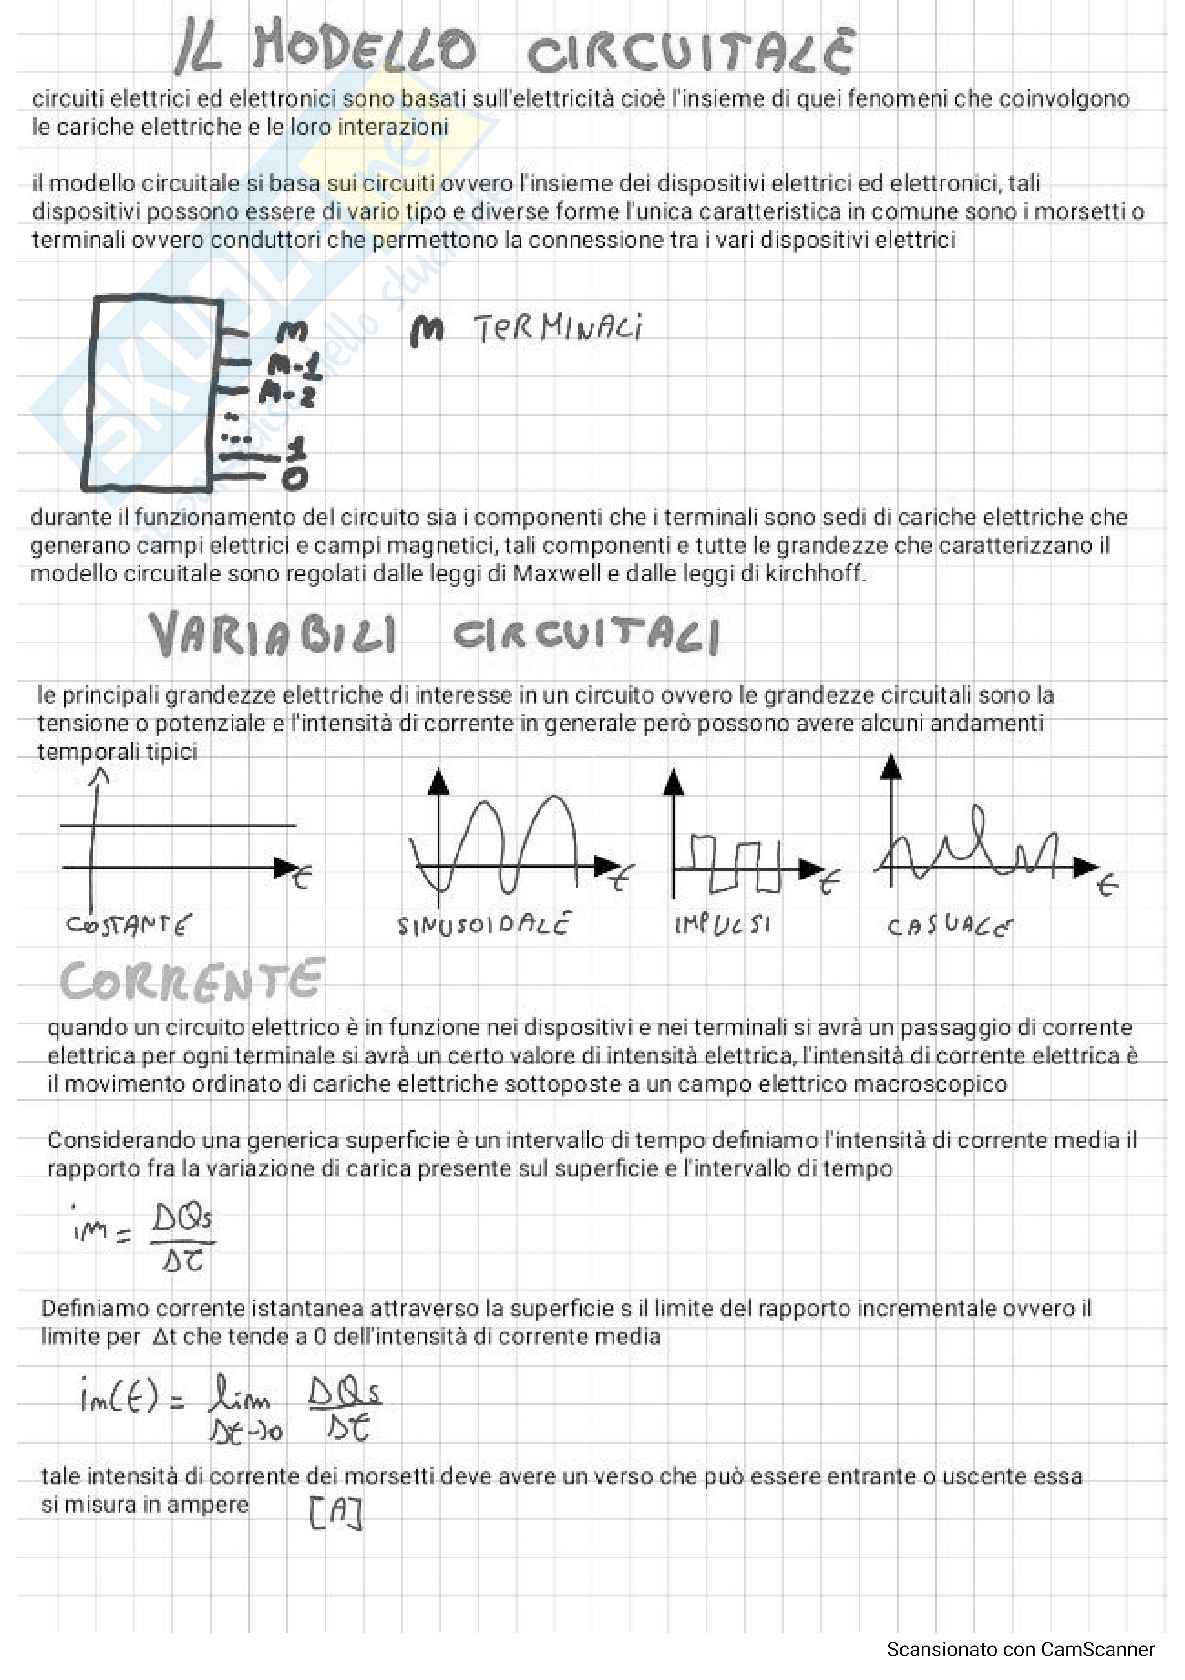 IL MODELLO CIRCUITALE
circuiti elettrici ed elettronici sono basati sull'elettricità cioè l'insieme di quei fenomeni che coinvolgono
le cariche elettriche e le loro interazioni
il modello circuitale si basa sui circuiti ovvero l'insieme dei dispositivi elettrici ed elettronici, tali
dispositivi possono essere di vario tipo e diverse forme l'unica caratteristica in comune sono i morsetti o
terminali ovvero conduttori che permettono la connessione tra i vari dispositivi elettrici
m m TERMINALi
m-1
m-2
1
0
durante il funzionamento del circuito sia i componenti che i terminali sono sedi di cariche elettriche che
generano campi elettrici e campi magnetici, tali componenti e tutte le grandezze che caratterizzano il
modello circuitale sono regolati dalle leggi di Maxwell e dalle leggi di kirchhoff.
VARIABILI CIRCUITALI
le principali grandezze elettriche di interesse in un circuito ovvero le grandezze circuitali sono la
tensione o potenziale e l'intensità di corrente in generale però possono avere alcuni andamenti
temporali tipici
t t t t
COSTANTE SINUSOIDALE IMPULSI CASUALE
CORRENTE
quando un circuito elettrico è in funzione nei dispositivi e nei terminali si avrà un passaggio di corrente
elettrica per ogni terminale si avrà un certo valore di intensità elettrica, l'intensità di corrente elettrica è
il movimento ordinato di cariche elettriche sottoposte a un campo elettrico macroscopico
Considerando una generica superficie è un intervallo di tempo definiamo l'intensità di corrente media il
rapporto fra la variazione di carica presente sul superficie e l'intervallo di tempo
im = ΔQs/Δt
Definiamo corrente istantanea attraverso la superficie s il limite del rapporto incrementale ovvero il
limite per Δt che tende a 0 dell'intensità di corrente media
im(t) = lim Δt→0 ΔQs/Δt
tale intensità di corrente dei morsetti deve avere un verso che può essere entrante o uscente essa
si misura in ampere [A]
Scansionato con CamScanner